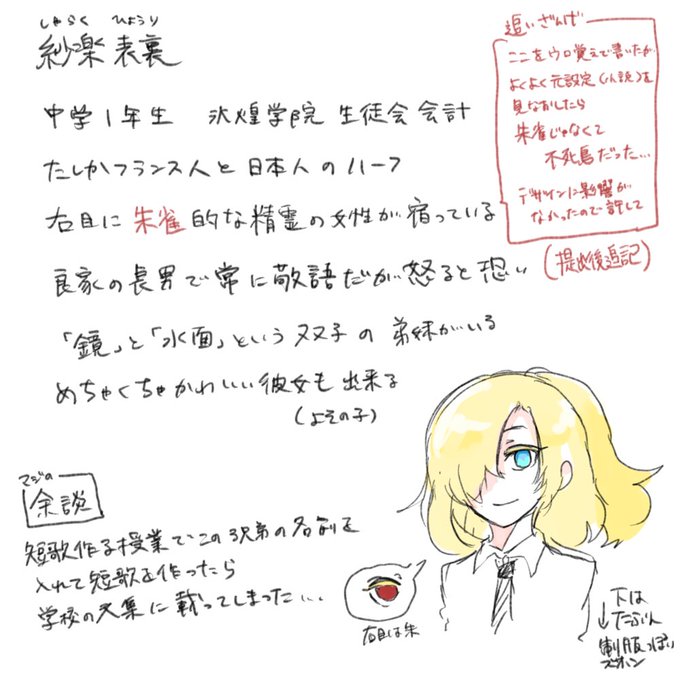 しゃらく ひょうり
紗楽 表裏
中学1年生 氷煌学院 生徒会会計
たしかフランス人と日本人のハーフ
右目に朱雀的な精霊の女性が宿っている
良家の長男で常に敬語だが怒ると恐い
「鏡」と「水面」という双子の弟妹がいる
めちゃくちゃかわいい彼女も出来る
(よその子)
追いざんげ
ここをウロ覚えで書いたが
よくよく元設定(小説)を
見なおしたら
朱雀じゃなくて
不死鳥だった…
デザインに影響が
なかったので許して
(提出後追記)
マジの
余談
短歌作る授業でこの3兄弟の名前を
入れて短歌を作ったら
学校の文集に載ってしまった…
右目は朱
下は
たぶん
制服っぽい
ズボン